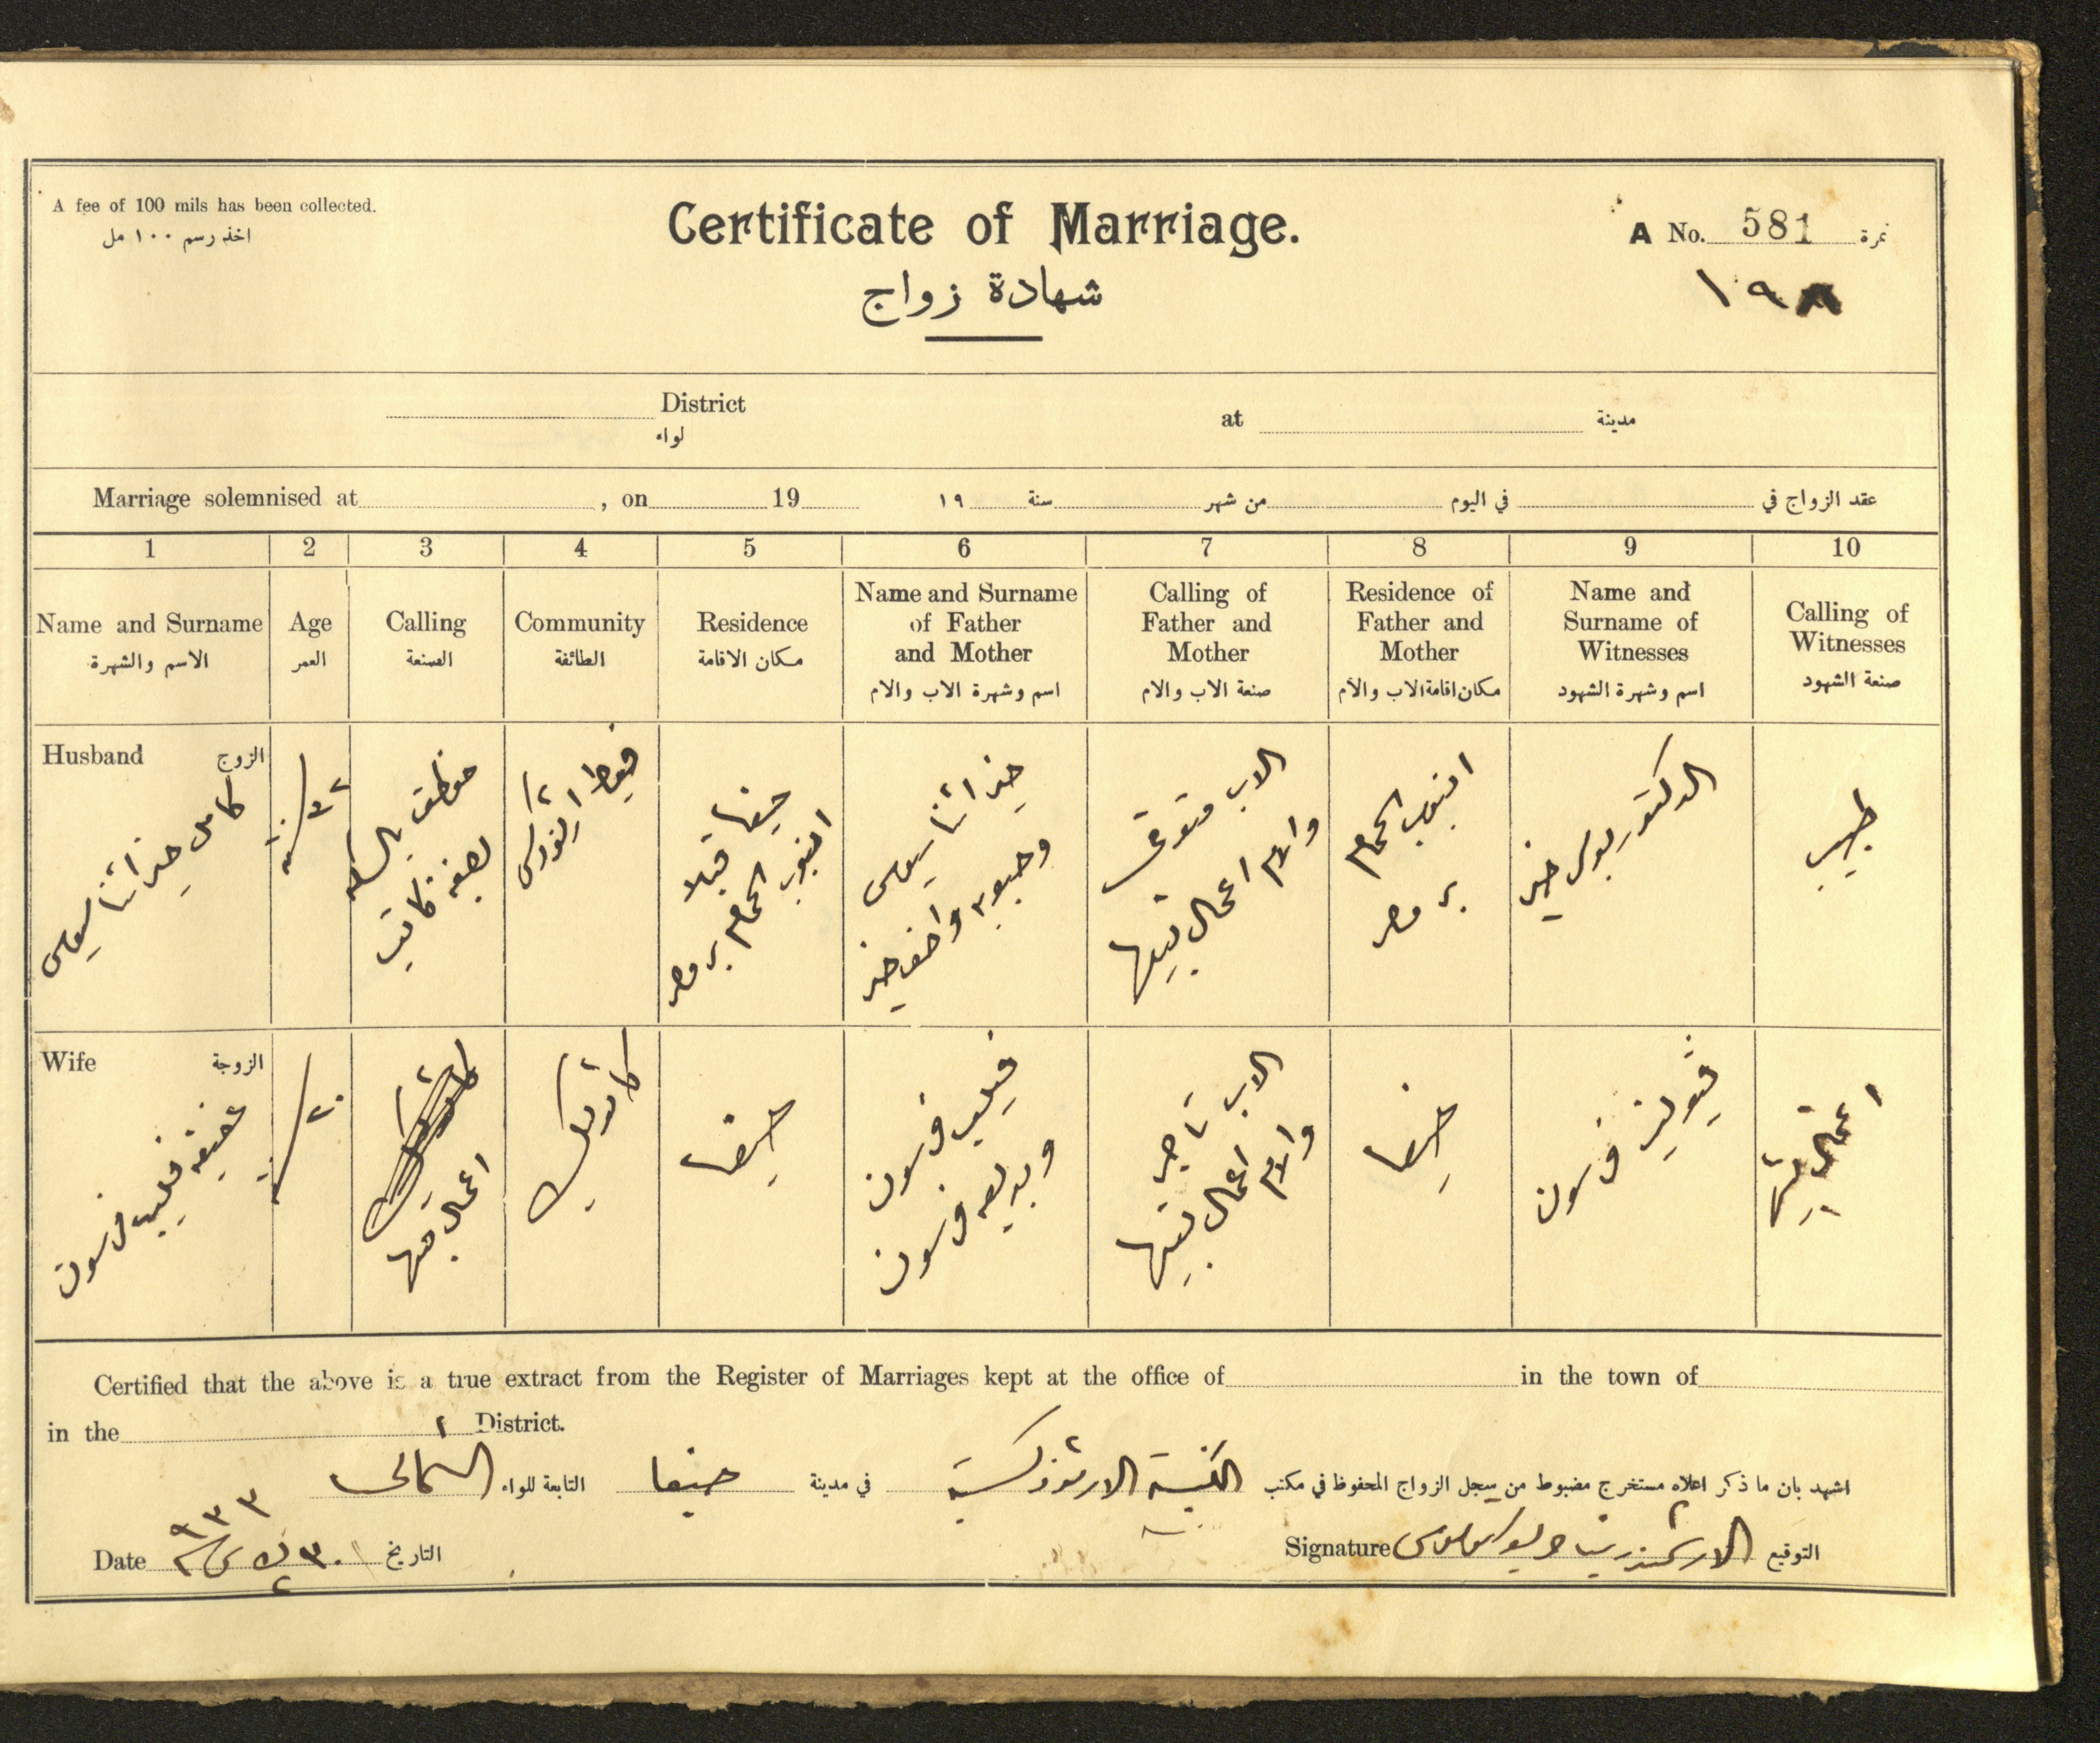 A fee of 100 mils has been collected.
اخذ رسم ١٠٠ مل
Certificate of Marriage.
شهادة زواج
A No. 581 نمرة
١٩٨
District
لواء
at مدينة
Marriage solemnised at , on 19 ١٩ سنة من شهر في اليوم عقد الزواج في
1 2 3 4 5 6 7 8 9 10
Name and Surname
الاسم والشهرة
Age
العمر
Calling
الصنعة
Community
الطائفة
Residence
مكان الاقامة
Name and Surname
of Father
and Mother
اسم وشهرة الاب والام
Calling of
Father and
Mother
صنعة الاب والام
Residence of
Father and
Mother
مكان اقامة الاب والام
Name and
Surname of
Witnesses
اسم وشهرة الشهود
Calling of
Witnesses
صنعة الشهود
Husband الزوج
كامل
قبط ارثوذكس
حيفا قبلا
الاب متوفى
والام اعمال بيتها
بر مصر
الدكتور بولس
طبيب
Wife الزوجة
عفيفه فيليب فرسون
٢٠
اعمال بيتها
كاثوليك
حيفا
فيليب فرسون
وبديعه فرسون
الاب تاجر
والام اعمال بيتها
حيفا
فرسون
اعمال بيتها
Certified that the above is a true extract from the Register of Marriages kept at the office of in the town of
in the District.
اشهد بان ما ذكر اعلاه مستخرج مضبوط من سجل الزواج المحفوظ في مكتب الكنيسة الارثوذكسية في مدينة حيفا التابعة للواء الشمالي
Date ٩٣٣ ٣٠ ك٢ التاريخ
Signature الارشمندريت التوقيع